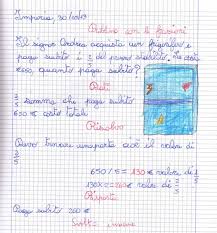 Imperia, 30/10/13
Problemi con le frazioni
Il signor Andrea acquista un frigorifero e
paga subito i 2/5 del prezzo stabilito. Se costa
650€, quanto paga subito?
Dati
2/5 somma che paga subito
650 € costo totale
Risolvo
Devo trovare una parte cioè il valore di 1/5
650 : 5 = 130 € valore di 1/5
130 x 2 = 260 € valore di 2/5
Rispondo
Paga subito 260 €